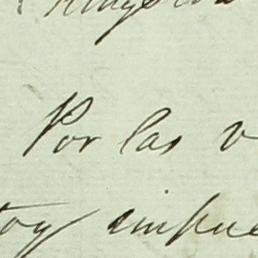 Por las v
toy impue